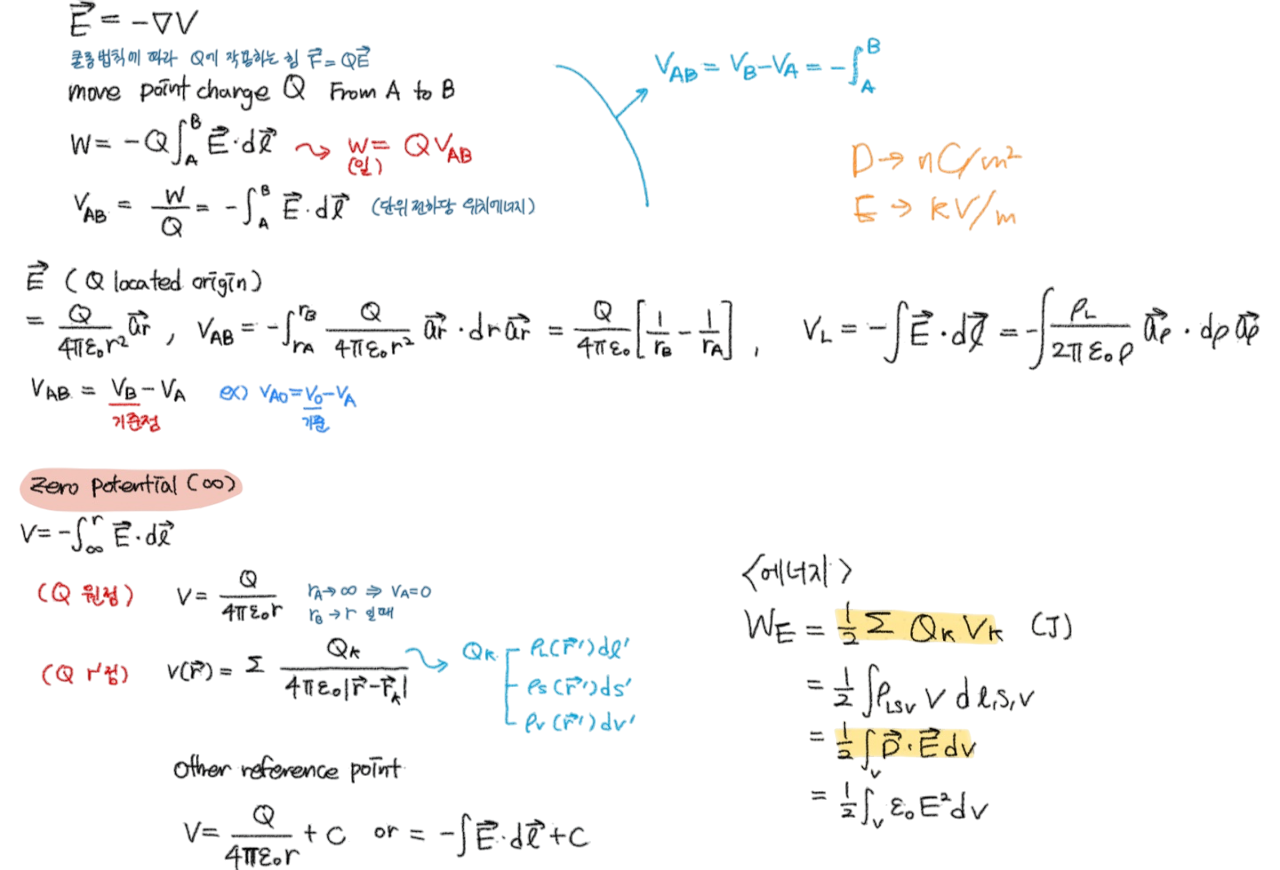 E⃗ = -∇V
쿨롱법칙에 따라 Q에 작용하는 힘 F⃗ = QE⃗
move point charge Q From A to B
W = -Q∫_A^B E⃗·dl⃗ ⇝ W = QV_AB
(일)
V_AB = W/Q = -∫_A^B E⃗·dl⃗ (단위전하당 위치에너지)
V_AB = V_B - V_A = -∫_A^B
D → nC/m²
E → kV/m
E⃗ (Q located origin)
= Q/(4πε₀r²) a⃗r , V_AB = -∫_{r_A}^{r_B} Q/(4πε₀r²) a⃗r · dr a⃗r = Q/(4πε₀) [1/r_B - 1/r_A] ,
V_L = -∫E⃗·dl⃗ = -∫ ρ_L/(2πε₀ρ) a⃗ρ · dρ a⃗ρ
V_AB = V_B - V_A ex) V_AO = V_O - V_A
기준점 기준
Zero potential (∞)
V = -∫_∞^r E⃗·dl⃗
(Q 원점) V = Q/(4πε₀r) r_A → ∞ ⇒ V_A = 0
r_B → r 일때
(Q r'점) V(r⃗) = Σ Q_k/(4πε₀|r⃗ - r⃗_k|) ⇝ Q_k
ρ_L(r⃗')dl'
ρ_s(r⃗')ds'
ρ_v(r⃗')dv'
Other reference point
V = Q/(4πε₀r) + C or = -∫E⃗·dl⃗ + C
<에너지>
W_E = ½ Σ Q_k V_k (J)
= ½ ∫ρ_LSV V d l,s,v
= ½ ∫_v D⃗·E⃗ dv
= ½ ∫_v ε₀E² dv